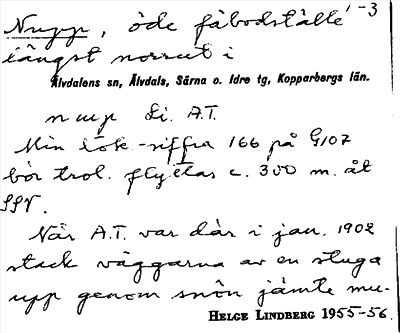 Nupp, öde fäbodställe 1-3
längst norrut i
Älvdalens sn, Älvdals, Särna o. Idre tg, Kopparbergs län.
nup Li. A.T.
Min lök-siffra 166 på G107
bör trol. flyttas c. 300 m. åt
SSV.
När A.T. var där i jan. 1902
stack väggarna av en stuga
upp genom snön jämte mu-
HELGE LINDBERG 1955-56.